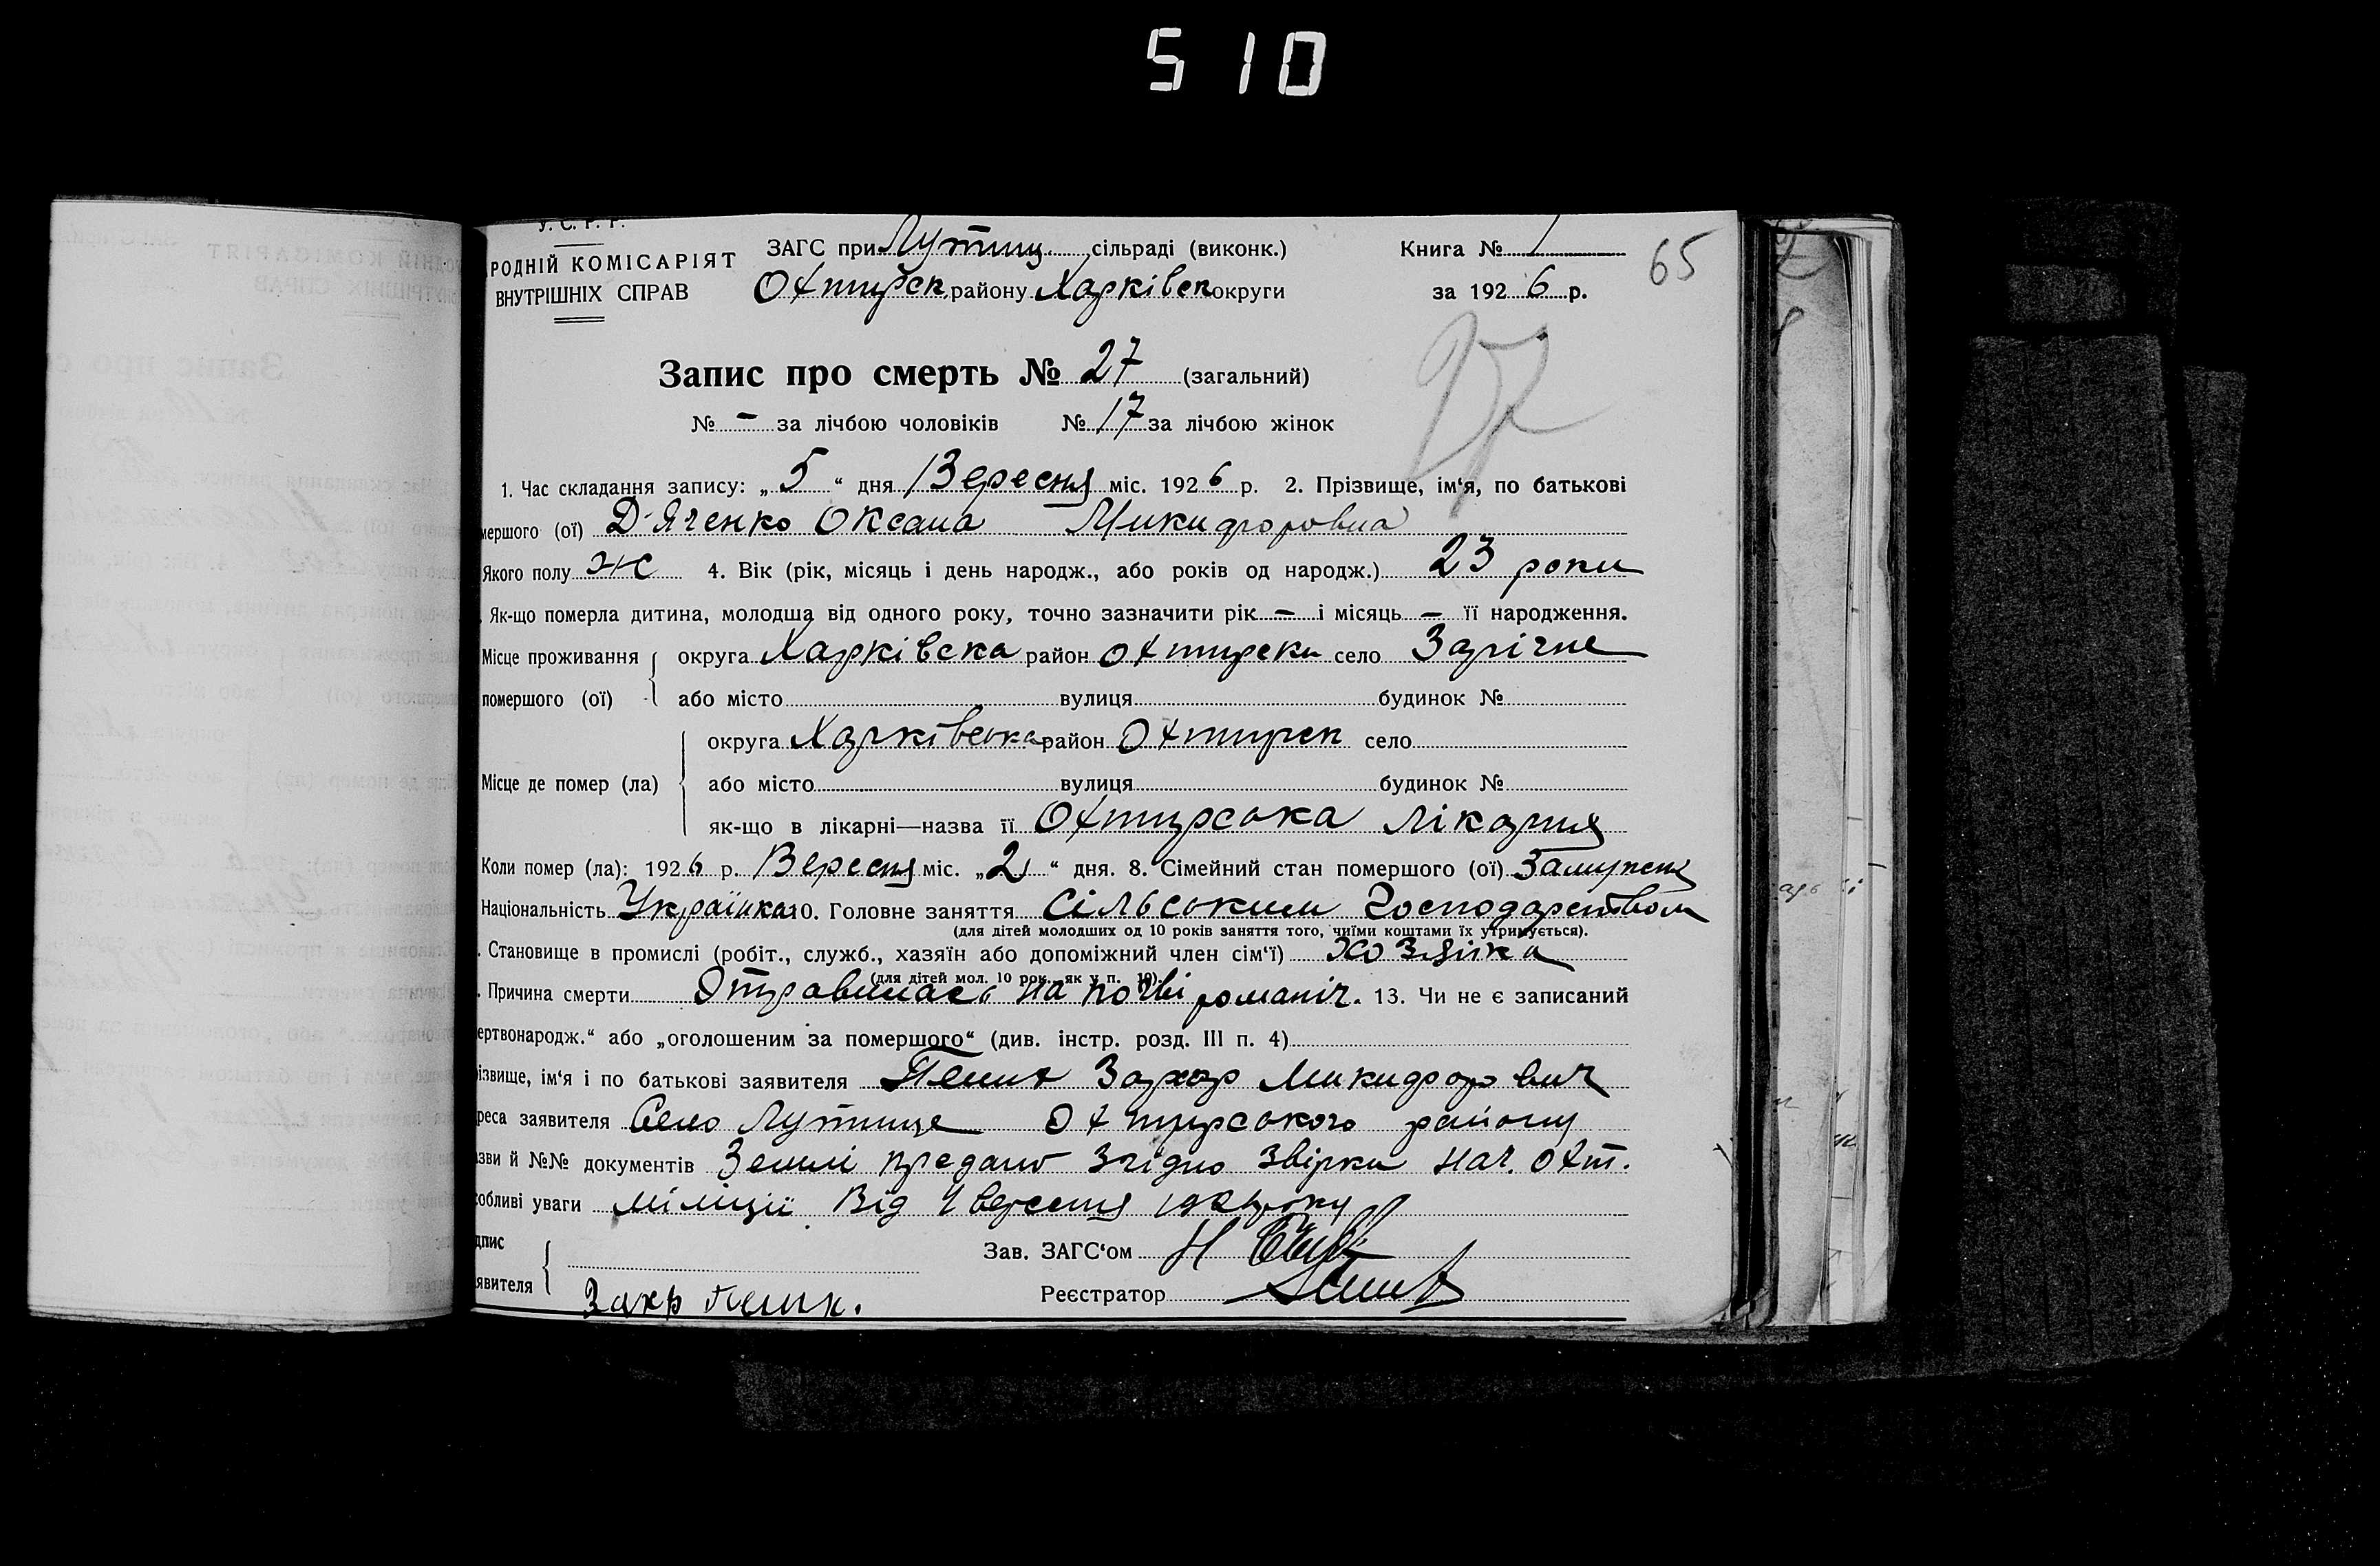 510
У. С. Р. Р.
РОДНІЙ КОМІСАРІЯТ
ВНУТРІШНІХ СПРАВ
ЗАГС при Лутищ. сільраді (виконк.)
Охтирск. району Харківск округи
Книга № 1
за 1926 р.
65
Запис про смерть № 27 (загальний)
27
№ – за лічбою чоловіків № 17 за лічбою жінок
1. Час складання запису: „5“ дня Вересня міс. 1926 р. 2. Прізвище, ім‘я, по батькові
мершого (ої) Д‘Яченко Оксана Микифоровна
Якого полу ж 4. Вік (рік, місяць і день народж., або років од народж.) 23 роки
. Як-що померла дитина, молодша від одного року, точно зазначити рік – і місяць – її народження.
Місце проживання помершого (ої) округа Харківска район Охтирски село Зарічне
або місто вулиця будинок №
Місце де помер (ла) округа Харківська район Охтирск село
або місто вулиця будинок №
як-що в лікарні—назва її Охтирська лікарня
Коли помер (ла): 1926 р. Вересня міс. „2“ дня. 8. Сімейний стан помершого (ої) Замужня
Національність Українка 10. Головне заняття Сільским Господарством
(для дітей молодших од 10 років заняття того, чиїми коштами їх утримується).
. Становище в промислі (робіт., служб., хазяїн або допоміжний член сім‘ї) хозяйка
(для дітей мол. 10 рок. як у п. 10).
. Причина смерти Отравилась на почві романіч. 13. Чи не є записаний
ертвонародж.“ або „оголошеним за помершого“ (див. інстр. розд. III п. 4)
різвище, ім‘я і по батькові заявителя Захар Микифорович
реса заявителя Село Лутище Охтирського району
зви й №№ документів Землі предано Згідно Звірки нач. Охт.
собливі уваги міліції Від вересня року
дпис
явителя
Зав. ЗАГС‘ом Н
Реєстратор
Захр